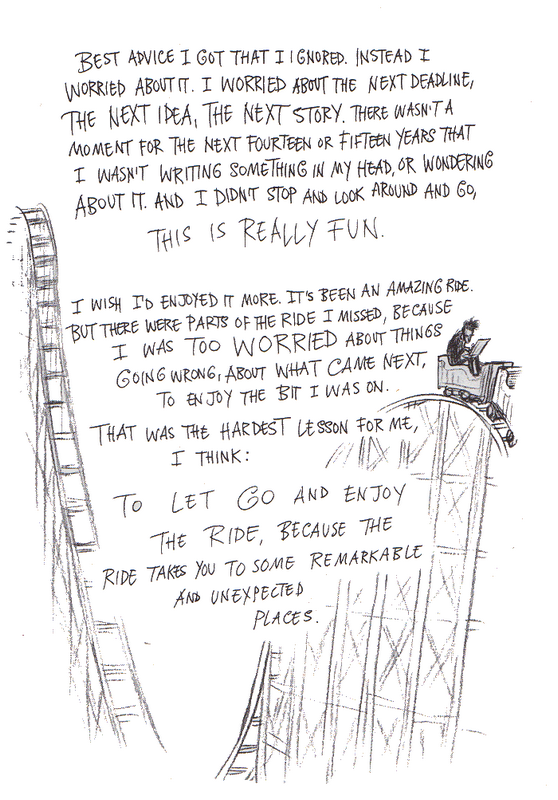 BEST ADVICE I GOT THAT I IGNORED. INSTEAD I
WORRIED ABOUT IT. I WORRIED ABOUT THE NEXT DEADLINE,
THE NEXT IDEA, THE NEXT STORY. THERE WASN'T A
MOMENT FOR THE NEXT FOURTEEN OR FIFTEEN YEARS THAT
I WASN'T WRITING SOMETHING IN MY HEAD, OR WONDERING
ABOUT IT. AND I DIDN'T STOP AND LOOK AROUND AND GO,
THIS IS REALLY FUN.
I WISH I'D ENJOYED IT MORE. IT'S BEEN AN AMAZING RIDE.
BUT THERE WERE PARTS OF THE RIDE I MISSED, BECAUSE
I WAS TOO WORRIED ABOUT THINGS
GOING WRONG, ABOUT WHAT CAME NEXT,
TO ENJOY THE BIT I WAS ON.
THAT WAS THE HARDEST LESSON FOR ME,
I THINK:
TO LET GO AND ENJOY
THE RIDE, BECAUSE THE
RIDE TAKES YOU TO SOME REMARKABLE
AND UNEXPECTED
PLACES.